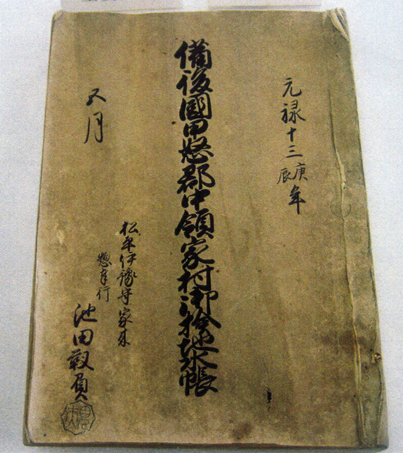 元禄十三庚辰年
備後國甲怒郡中領家村御検地水帳
五月
松平伊豫守家来
惣奉行
池田